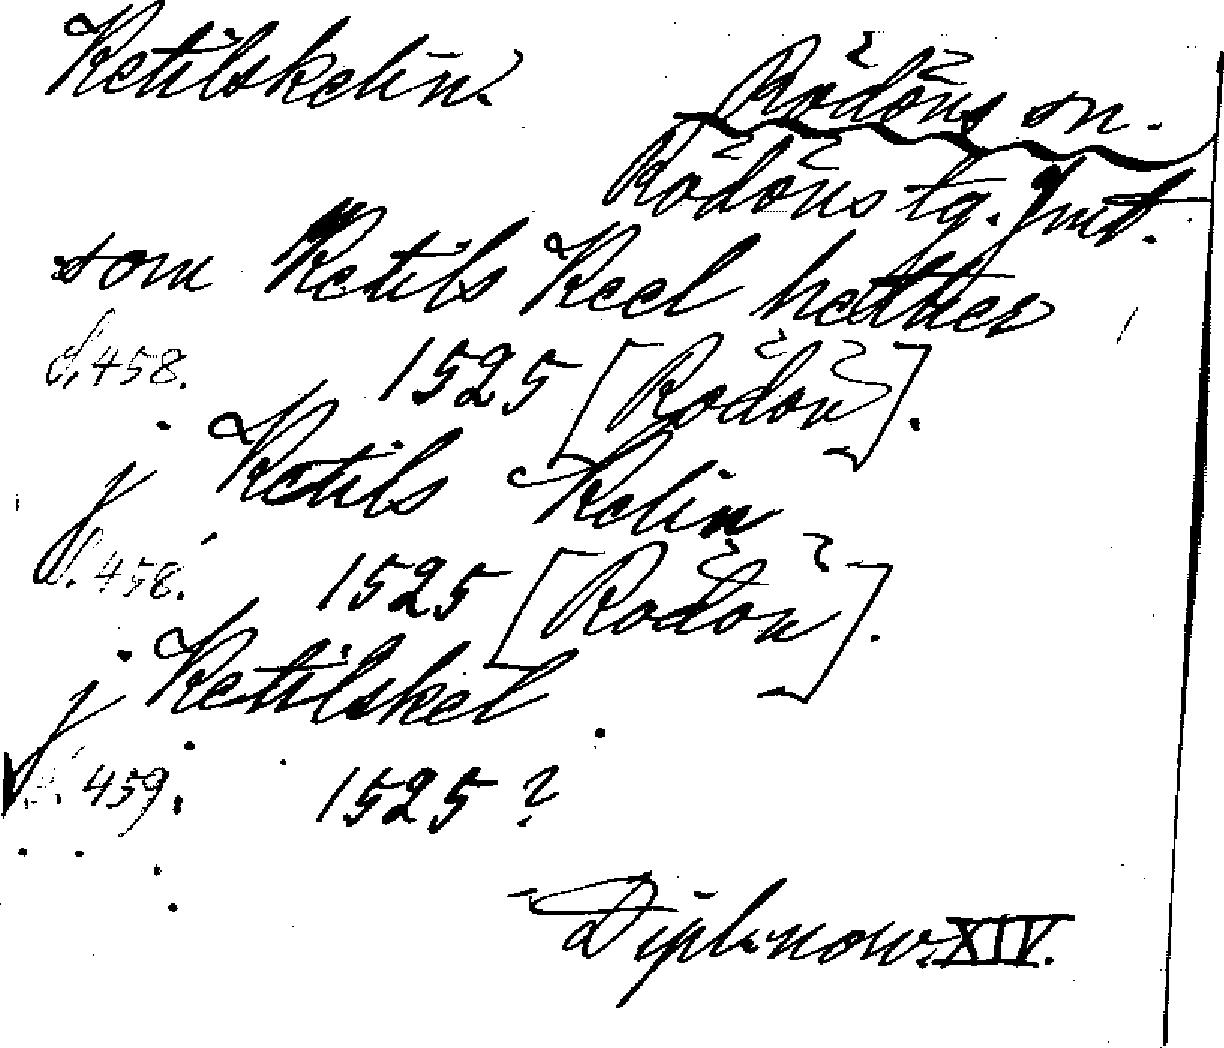 Ketilskelin.
Rödöns sn.
Rödöns tg. Jmt.
som Ketils Keel hether
d, 458. 1525 [Rödön].
j Ketils Kelin
d. 458. 1525 [Rödön].
j Ketilskel
459. 1525?
Dipl. norv. XIV.